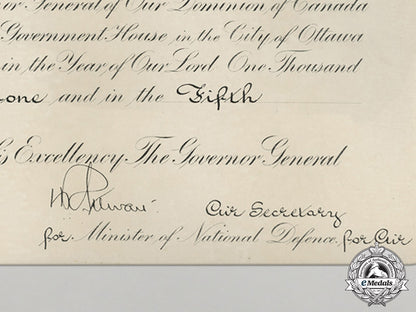 or General of Our Dominion of Canada
Government House in the City of Ottawa
in the Year of Our Lord One Thousand
one and in the Fifth
is Excellency The Governor General
Air Secretary
for Minister of National Defence for Air
eMedals